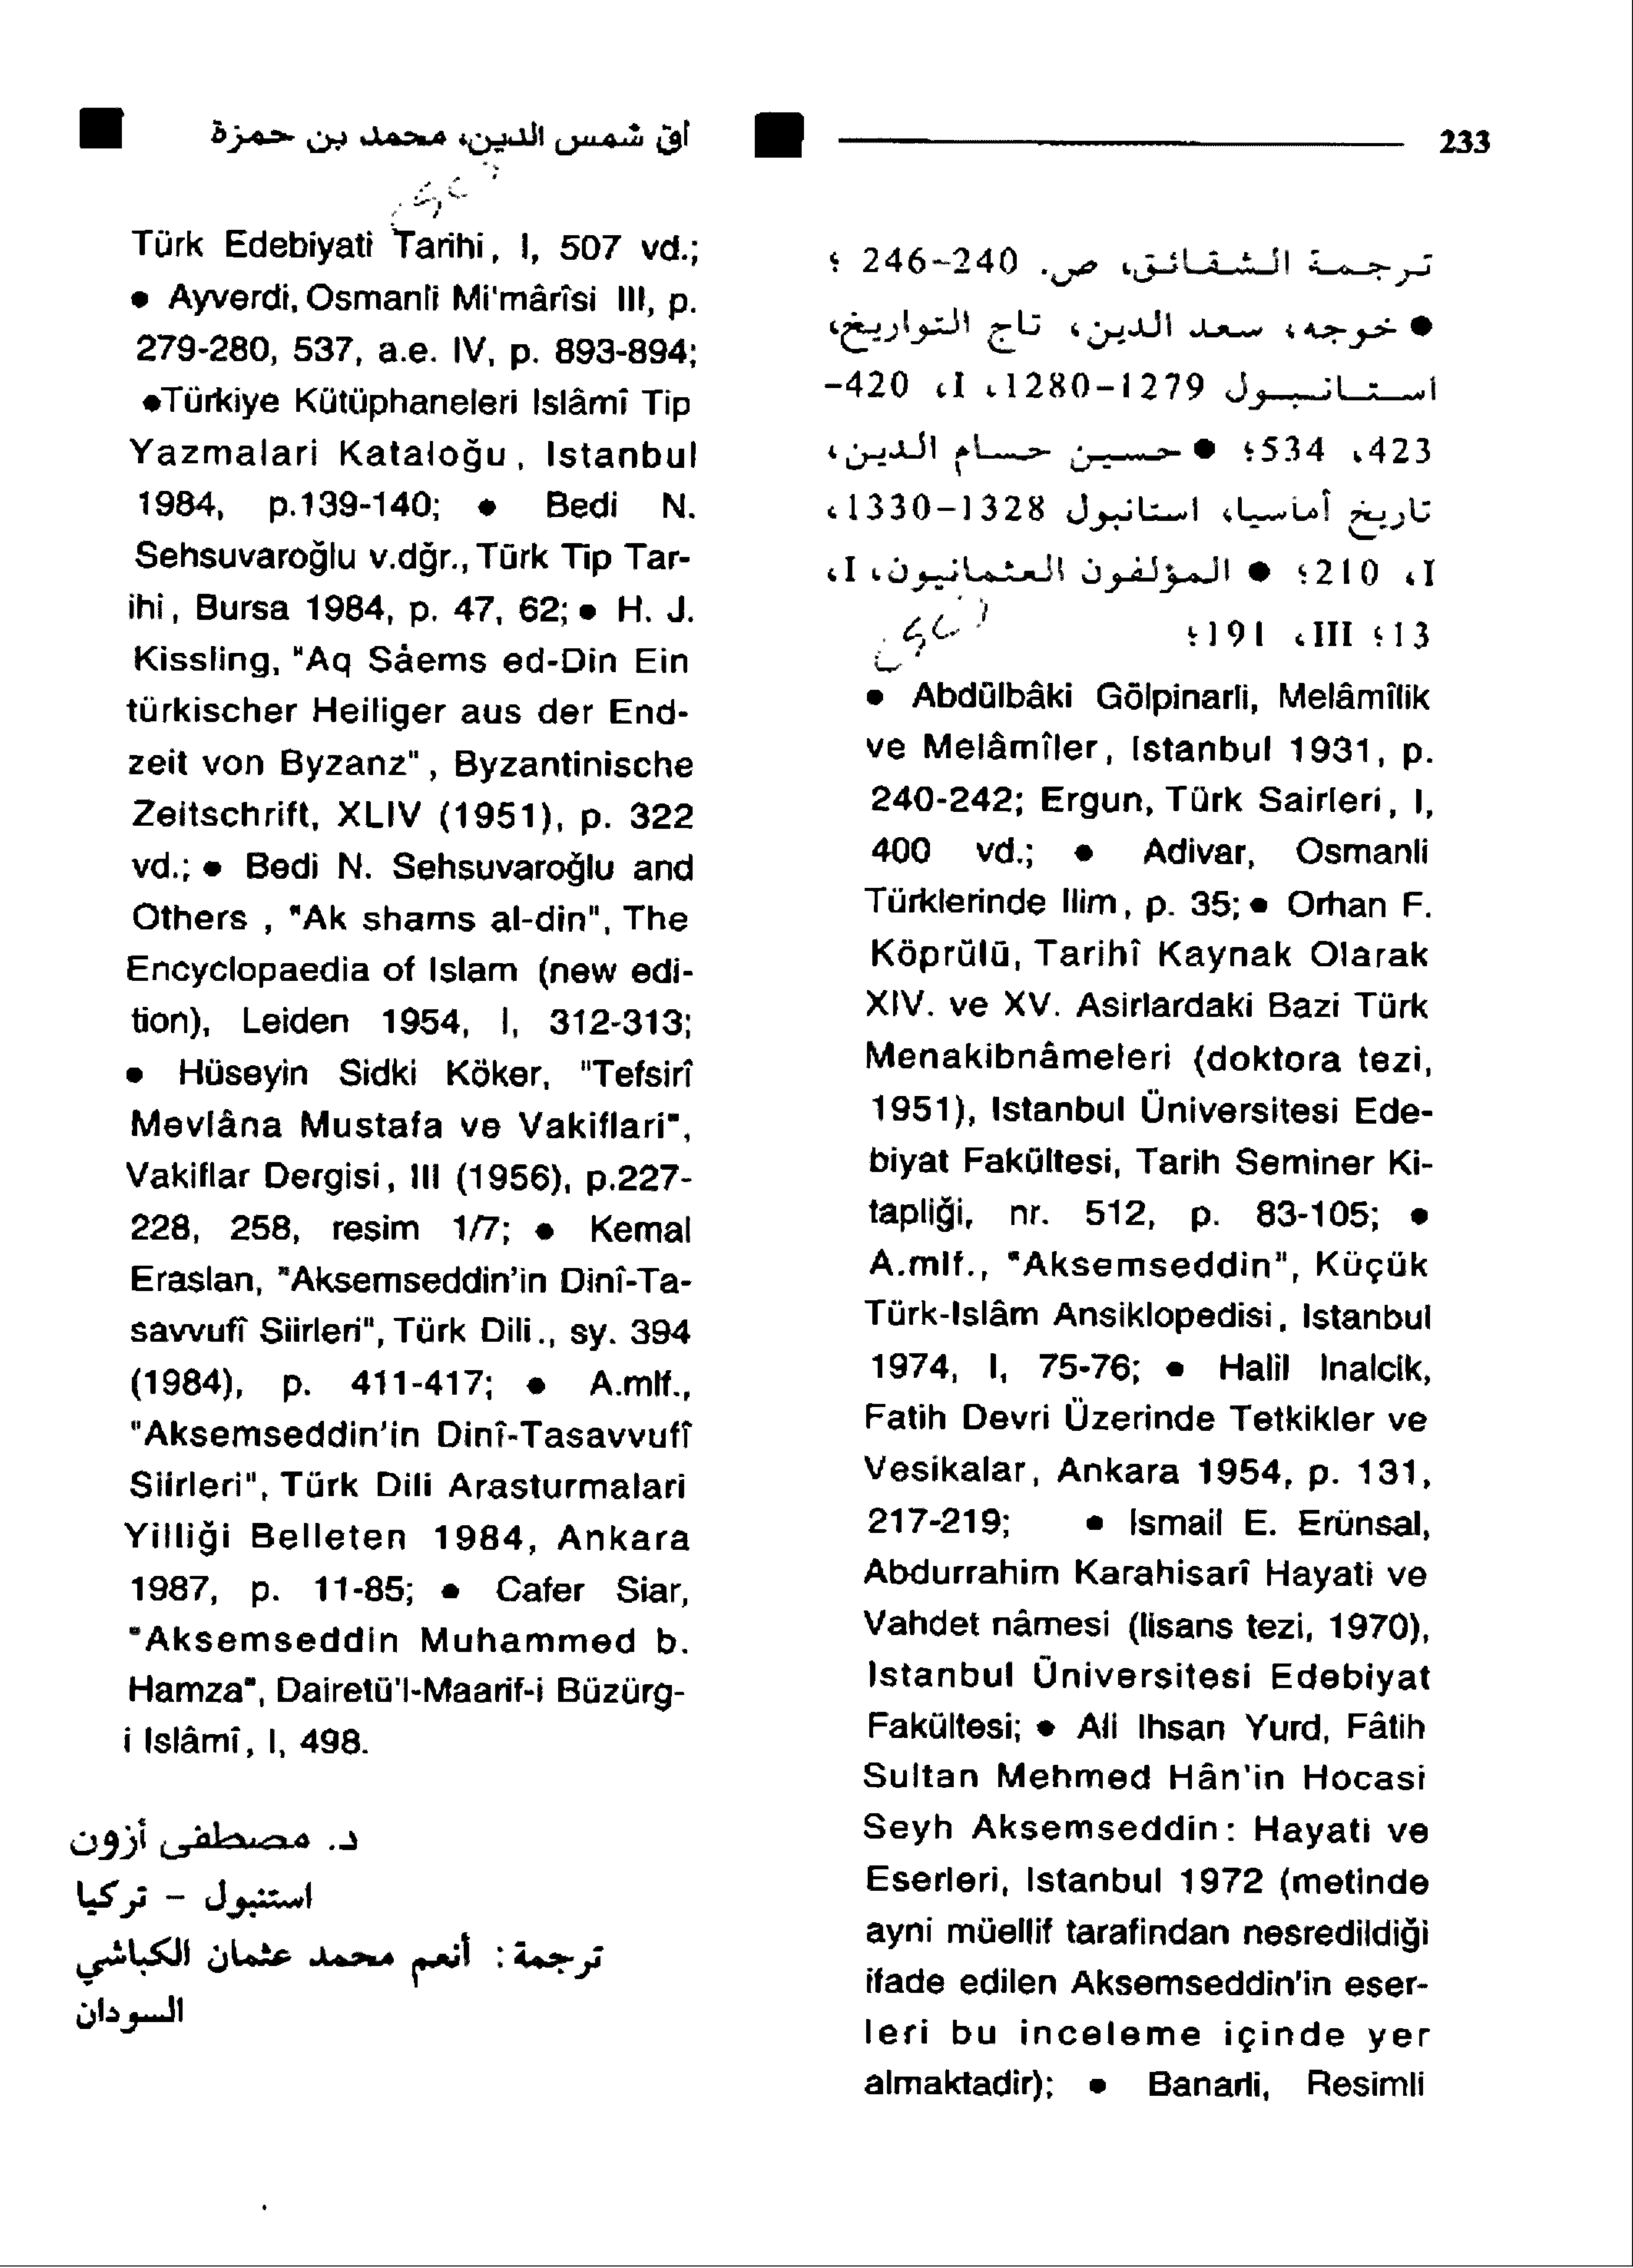 233
آق شمس الدين، محمد بن حمزة
ترجمة الشقائق، ص. 240-246 ؛
● خوجه، سعد الدين، تاج التواريخ،
استانبول 1279-1280، I، 420-
423، 534؛ ● حسين حسام الدين،
تاريخ أماسيا، استانبول 1328-1330،
I، 210؛ ● المؤلفون العثمانيون، I،
13؛ III، 191؛
● Abdülbâki Gölpinarli, Melâmîlik
ve Melâmîler, Istanbul 1931, p.
240-242; Ergun, Türk Sairleri, I,
400 vd.; ● Adivar, Osmanli
Türklerinde Ilim, p. 35; ● Orhan F.
Köprülü, Tarihî Kaynak Olarak
XIV. ve XV. Asirlardaki Bazi Türk
Menakibnâmeleri (doktora tezi,
1951), Istanbul Üniversitesi Ede-
biyat Fakültesi, Tarih Seminer Ki-
tapliği, nr. 512, p. 83-105; ●
A.mlf., "Aksemseddin", Küçük
Türk-Islâm Ansiklopedisi, Istanbul
1974, I, 75-76; ● Halil Inalcik,
Fatih Devri Üzerinde Tetkikler ve
Vesikalar, Ankara 1954, p. 131,
217-219; ● Ismail E. Erünsal,
Abdurrahim Karahisarî Hayati ve
Vahdet nâmesi (lisans tezi, 1970),
Istanbul Üniversitesi Edebiyat
Fakültesi; ● Ali Ihsan Yurd, Fâtih
Sultan Mehmed Hân'in Hocasi
Seyh Aksemseddin: Hayati ve
Eserleri, Istanbul 1972 (metinde
ayni müellif tarafindan nesredildiği
ifade edilen Aksemseddin'in eser-
leri bu inceleme içinde yer
almaktadir); ● Banarli, Resimli
Türk Edebiyati Tarihi, I, 507 vd.;
● Ayverdi, Osmanli Mi'mârîsi III, p.
279-280, 537, a.e. IV, p. 893-894;
●Türkiye Kütüphaneleri Islâmî Tip
Yazmalari Kataloğu, Istanbul
1984, p.139-140; ● Bedi N.
Sehsuvaroğlu v.dğr., Türk Tip Tar-
ihi, Bursa 1984, p. 47, 62; ● H. J.
Kissling, "Aq Sâems ed-Din Ein
türkischer Heiliger aus der End-
zeit von Byzanz", Byzantinische
Zeitschrift, XLIV (1951), p. 322
vd.; ● Bedi N. Sehsuvaroğlu and
Others , "Ak shams al-din", The
Encyclopaedia of Islam (new edi-
tion), Leiden 1954, I, 312-313;
● Hüseyin Sidki Köker, "Tefsirî
Mevlâna Mustafa ve Vakiflari",
Vakiflar Dergisi, III (1956), p.227-
228, 258, resim 1/7; ● Kemal
Eraslan, "Aksemseddin'in Dinî-Ta-
savvufî Siirleri", Türk Dili., sy. 394
(1984), p. 411-417; ● A.mlf.,
"Aksemseddin'in Dinî-Tasavvufî
Siirleri", Türk Dili Arasturmalari
Yilliği Belleten 1984, Ankara
1987, p. 11-85; ● Cafer Siar,
"Aksemseddin Muhammed b.
Hamza", Dairetü'l-Maarif-i Büzürg-
i Islâmî, I, 498.
د. مصطفى أزون
استنبول - تركيا
ترجمة : أنعم محمد عثمان الكباشي
السودان